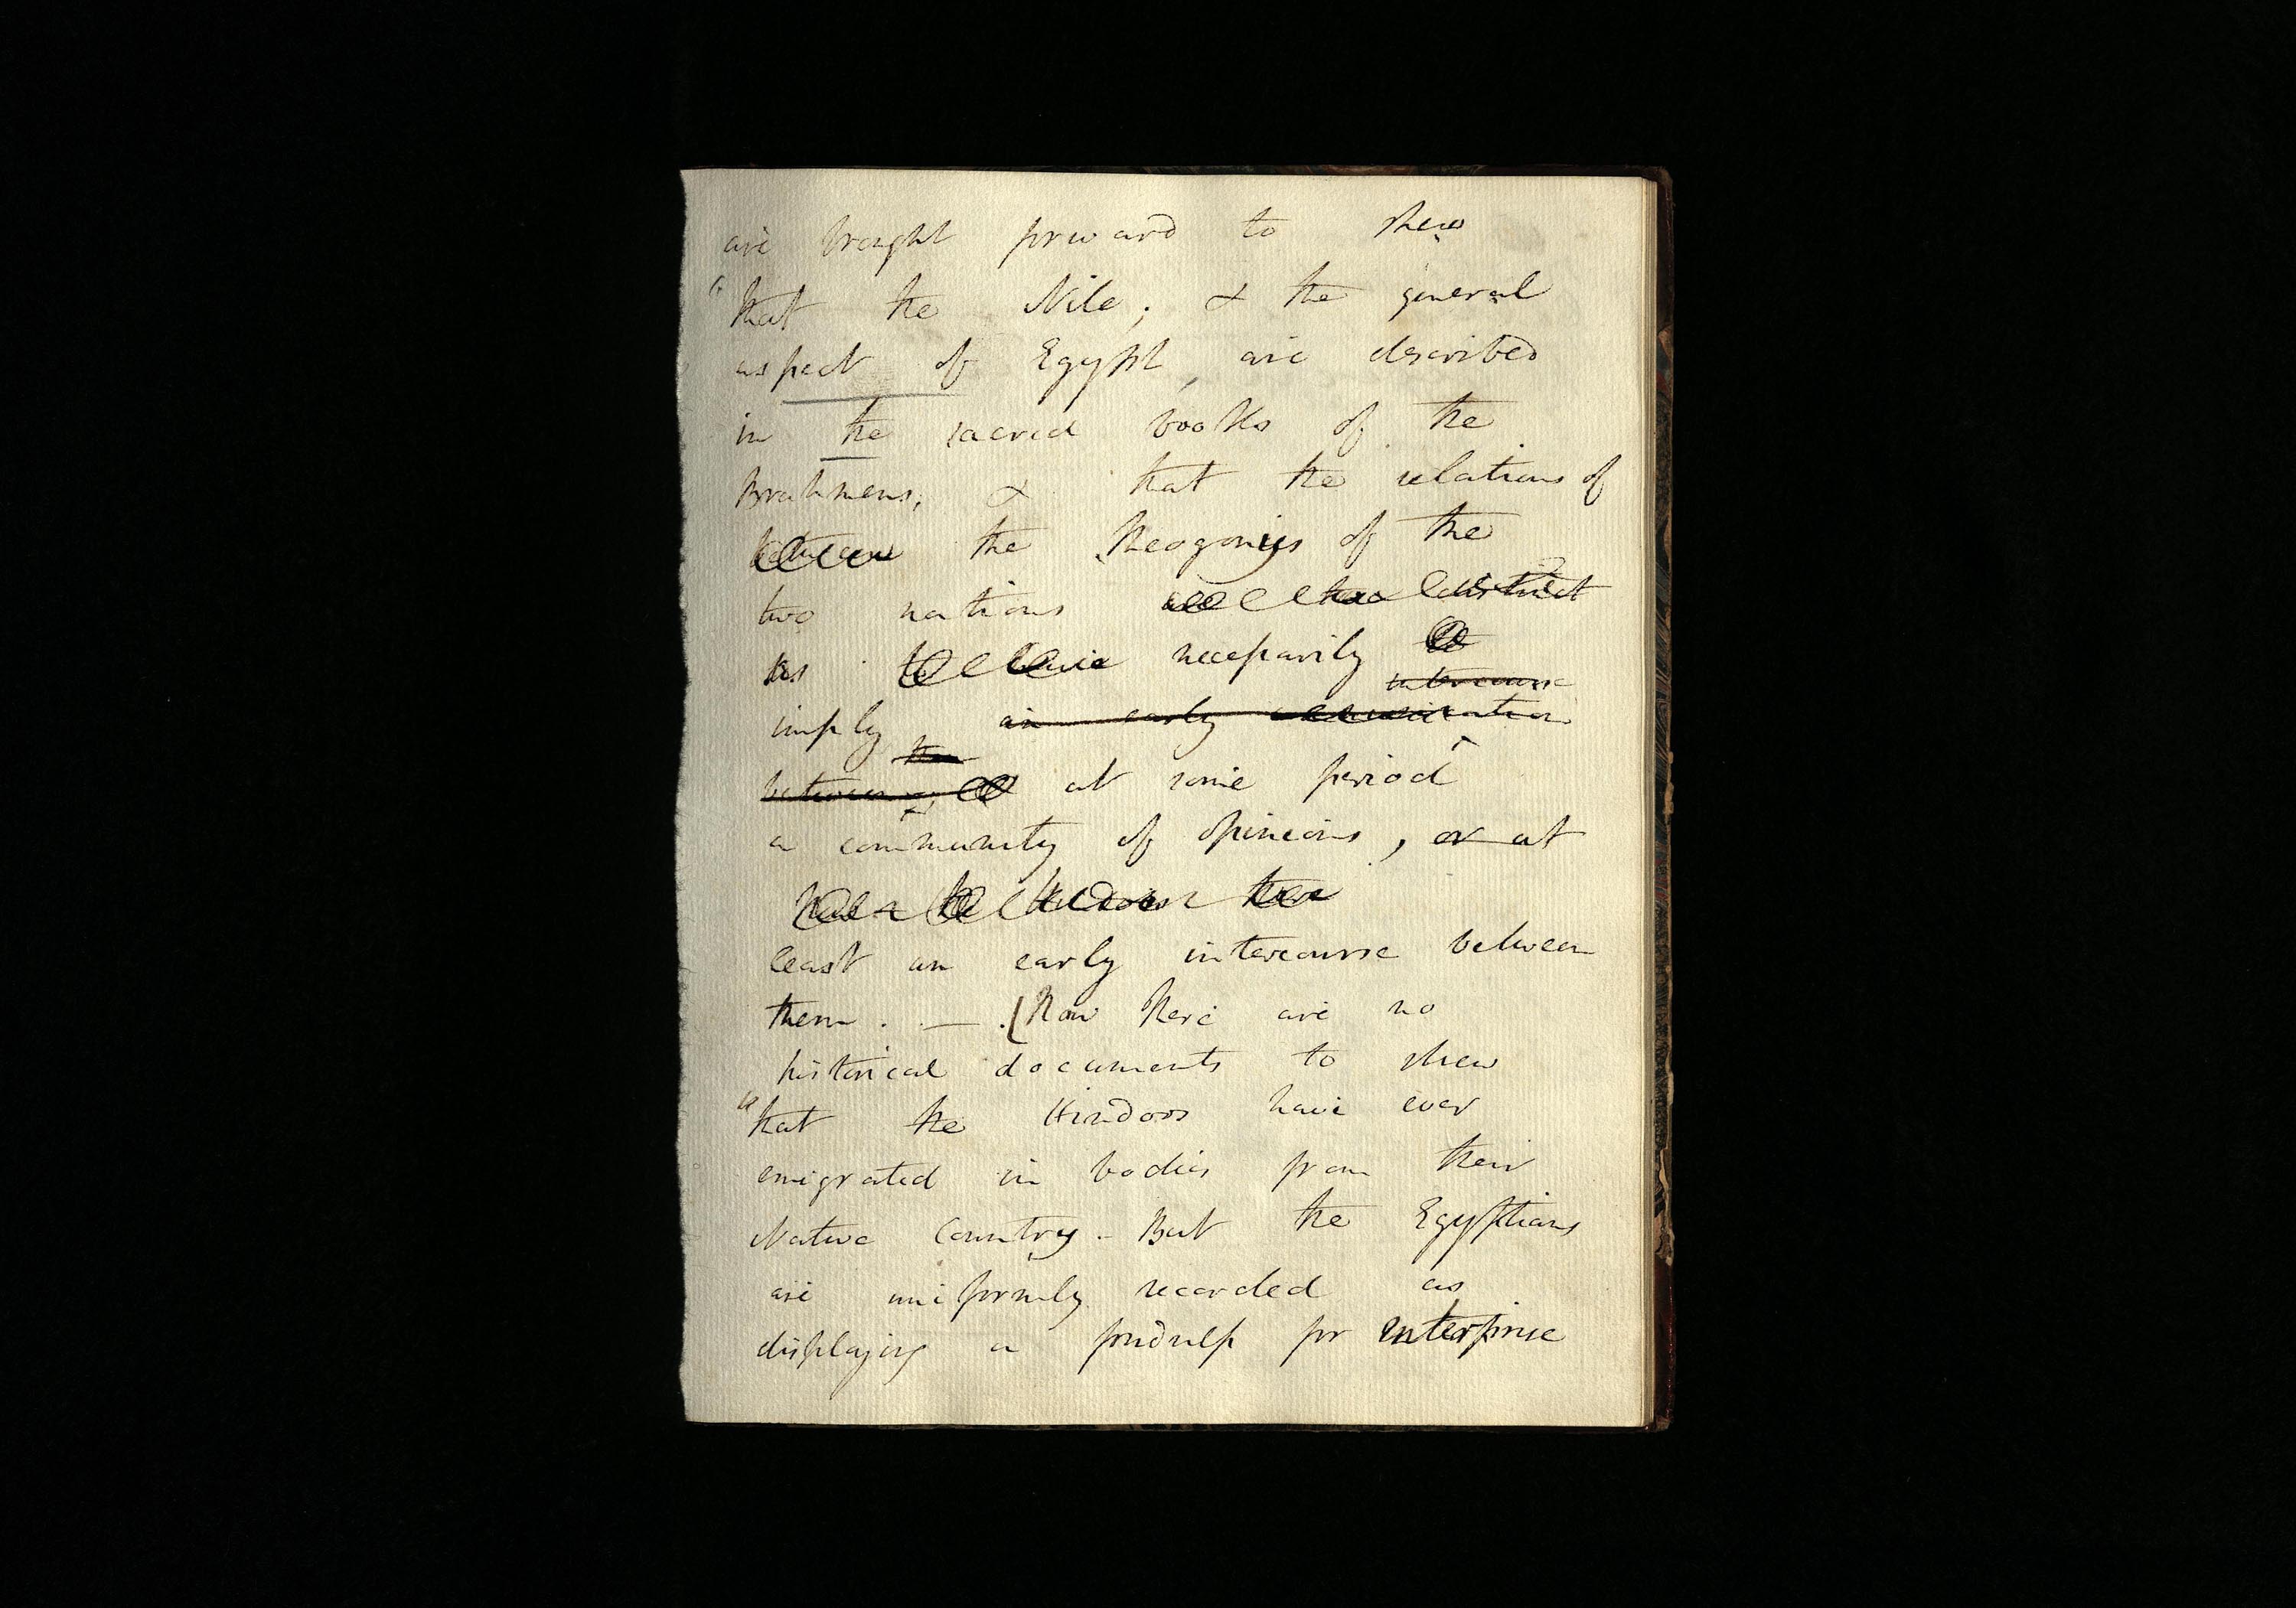 are brought forward to shew
"that the Nile; & the general
aspect of Egypt, are described
in the sacred books of the
Brahmens; & that the relations of
between the Theogonies of the
two nations distinct
as necessarily
intercourse
imply an early communication
between at some period
a community of opinions, or at
least an early intercourse between
them. — . (Now there are no
historical documents to shew
"that the Hindoos have ever
emigrated in bodies from their
Native Country. - But the Egyptians
are uniformly recorded as
displaying a fondness for enterprise